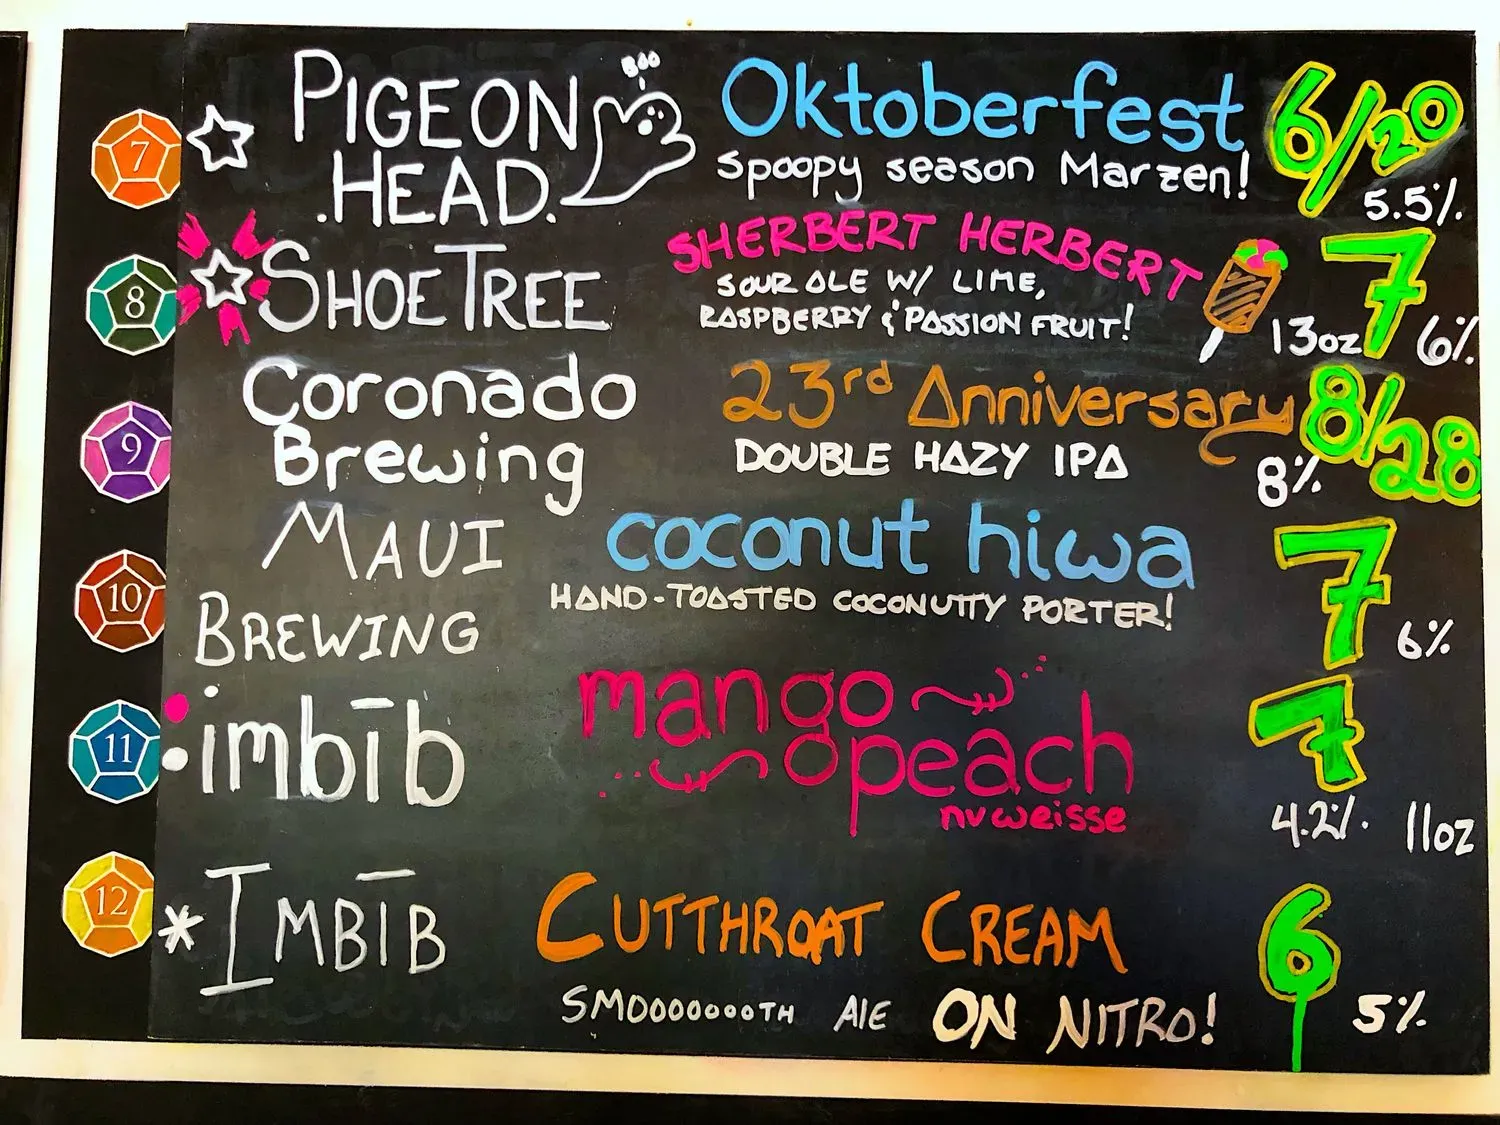 7 PIGEON HEAD. BOO Oktoberfest 6/20
Spoopy season Marzen! 5.5%
8 SHOETREE SHERBERT HERBERT 7
SOUR ALE W/ LIME,
RASPBERRY & PASSION FRUIT! 13oz 6%
9 Coronado Brewing 23rd Anniversary 8/28
DOUBLE HAZY IPA 8%
10 MAUI BREWING coconut hiwa 7
HAND-TOASTED COCONUTTY PORTER! 6%
11 imbīb mango peach 7
nvweisse 4.2% 11oz
12 * IMBĪB CUTTHROAT CREAM 6
SMOOOOOOOTH ALE ON NITRO! 5%